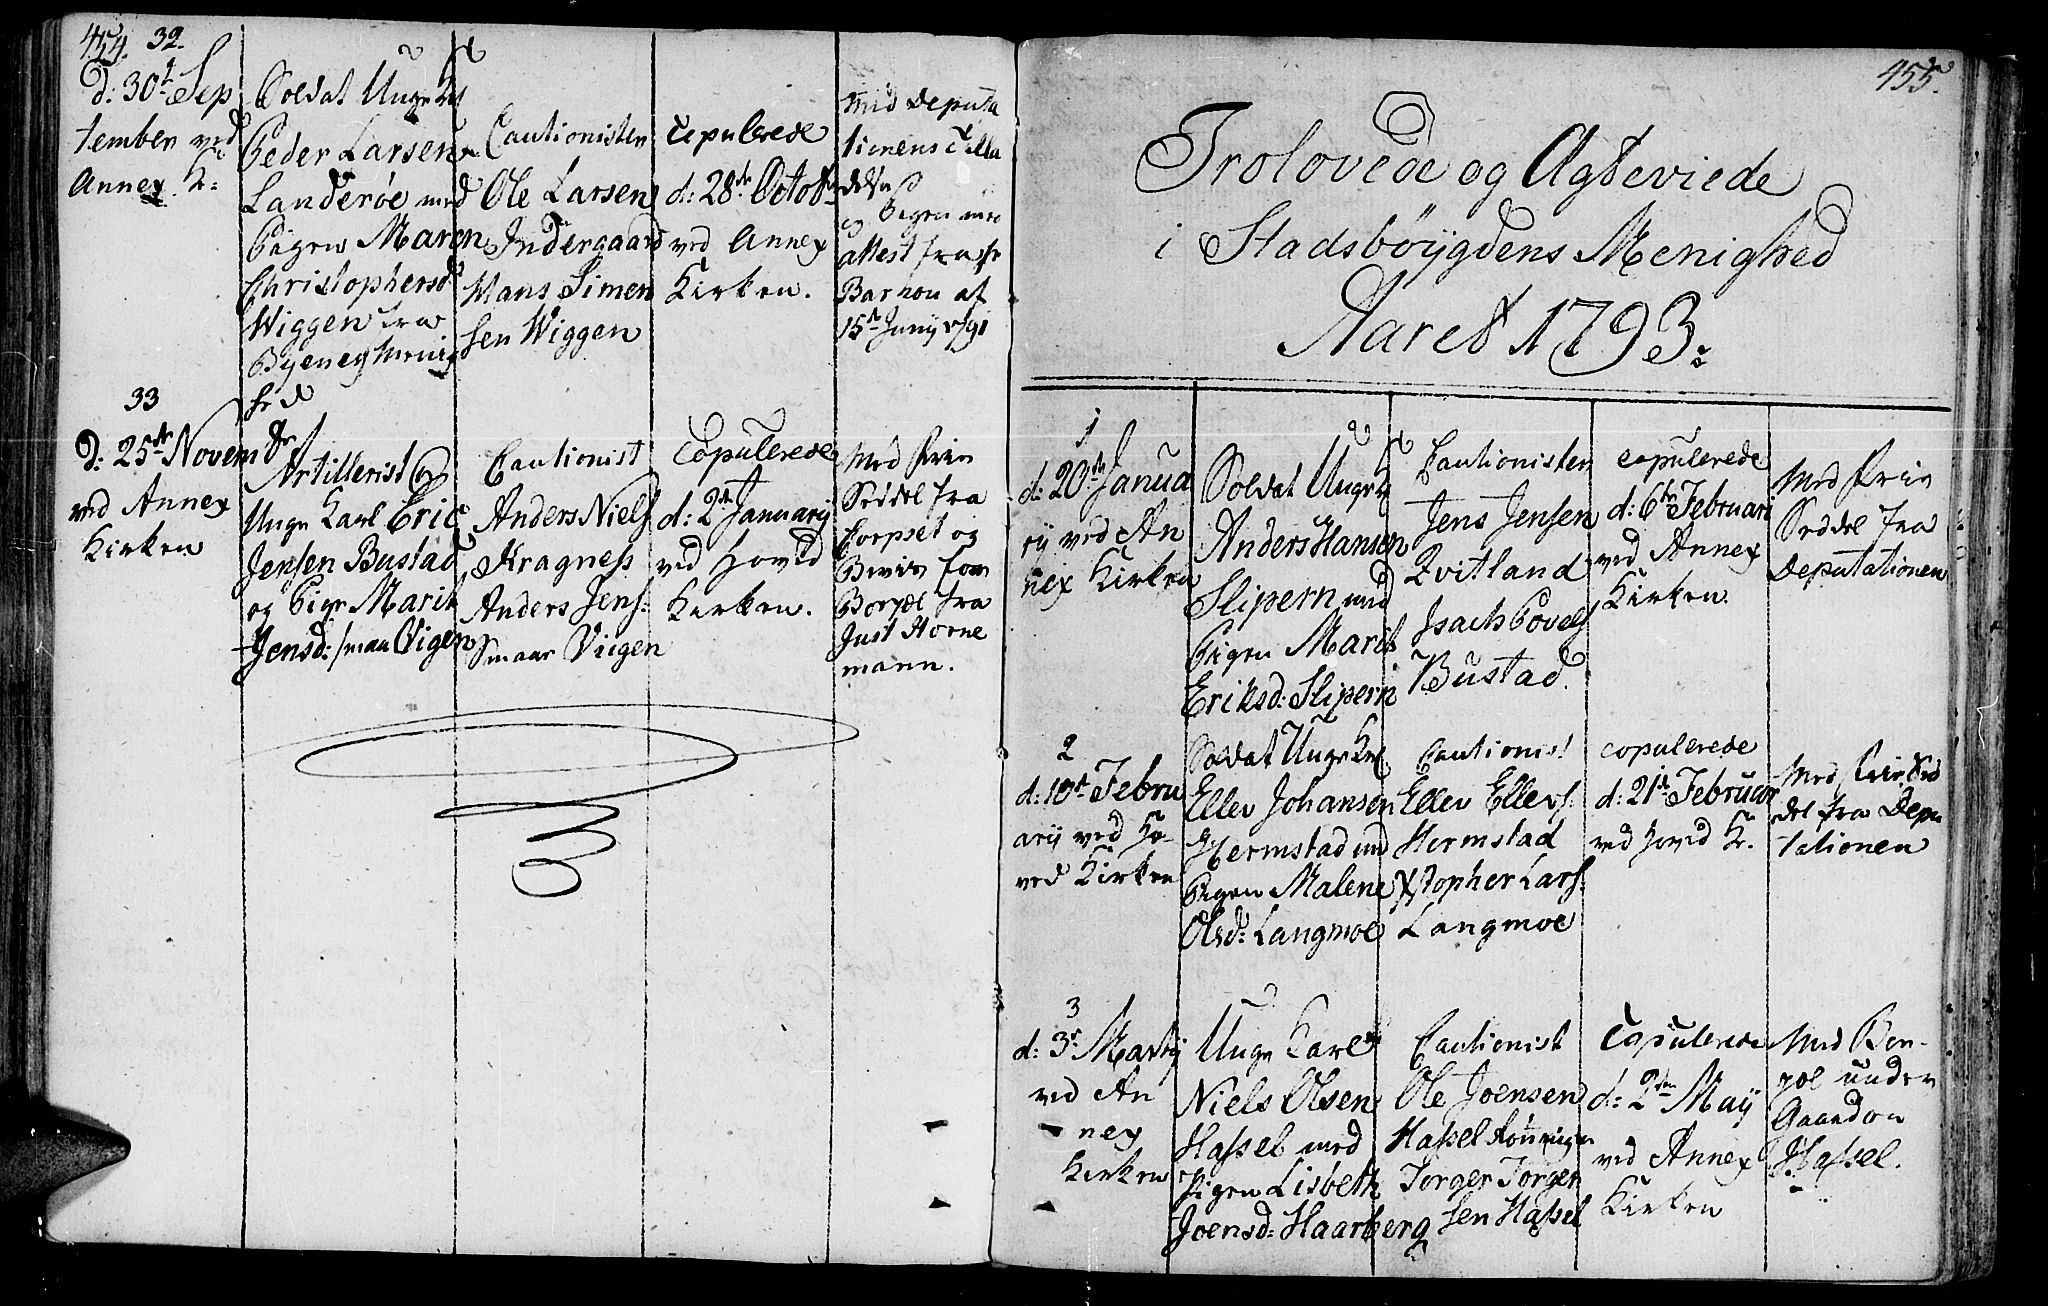 454.
32.
d: 30t Sep
tember ved
Annex K:
Soldat Unge Kl
Peder Larsen
Landerøe med
Pigen Maren
Christophersd:
Wiggen fra
Byenes Menig
hed
Cautionisten
Ole Larsen
Indergaard
Hans Simen
sen Wiggen
Copulerede
d: 28de Octob
ved Annex
Kirken.
med Deputa
tionens Tilla
delse
Pigen med
attest fra
af
15de Junij 1791
33
d: 25de Novembr
ved Annex
Kirken
Artillerist
Unge Karl Eric
Jensen Bustad
og Pige Marit
Jensd: smaa Vigen
Cautionist
Anders Niels
Kragness
Anders Jens:
Smaae Viigen
Copulerede
d: 2de Januarij
ved Hoved
Kirken.
Med Friie
Seddel fra
Corpset og
Beviis fra
fra
Just Horne
mann.
455.
Trolovede og Ægteviede
i Stadsböÿgdens Menighed
Aaret 1793.
1
d: 20de Janua
rij ved An
nex Kirken
Soldat Unge K
Anders Hansen
Slipern med
Pigen Marit
Eriksd: Slipern
Cautionisten
Jens Jensen
Qvitland
Isach Povels
Bustad.
copulerede
d: 6te Februari
ved Annex
Kirken.
Med Friie
Seddel fra
Deputationen
2
d: 10de Febru
arij ved Ho
ved Kirken
Soldat Unge Karl
Eller Johansen
Hermstad med
Pigen Malene
Olsd: Langmoe
Cautionist
Eller Ellers:
Hermstad
Xstopher Lars:
Langmoe
copulerede
d: 21de Februar
ved Hoved K.
Med Frie Sed
del fra Depu
tationen
3
d: 3de Martij
ved An
nex
Kirken
Unge Karl
Niels Olsen
Hassel med
Pigen Lisbeth
Joensd: Haarberg
Cautionist
Ole Joensen
Hassel
Torger Torger
sen Hassel
Copulerede
d: 2den Maij
ved Annex
Kirken
Med Bor-
under
Gaarden
Hassel.